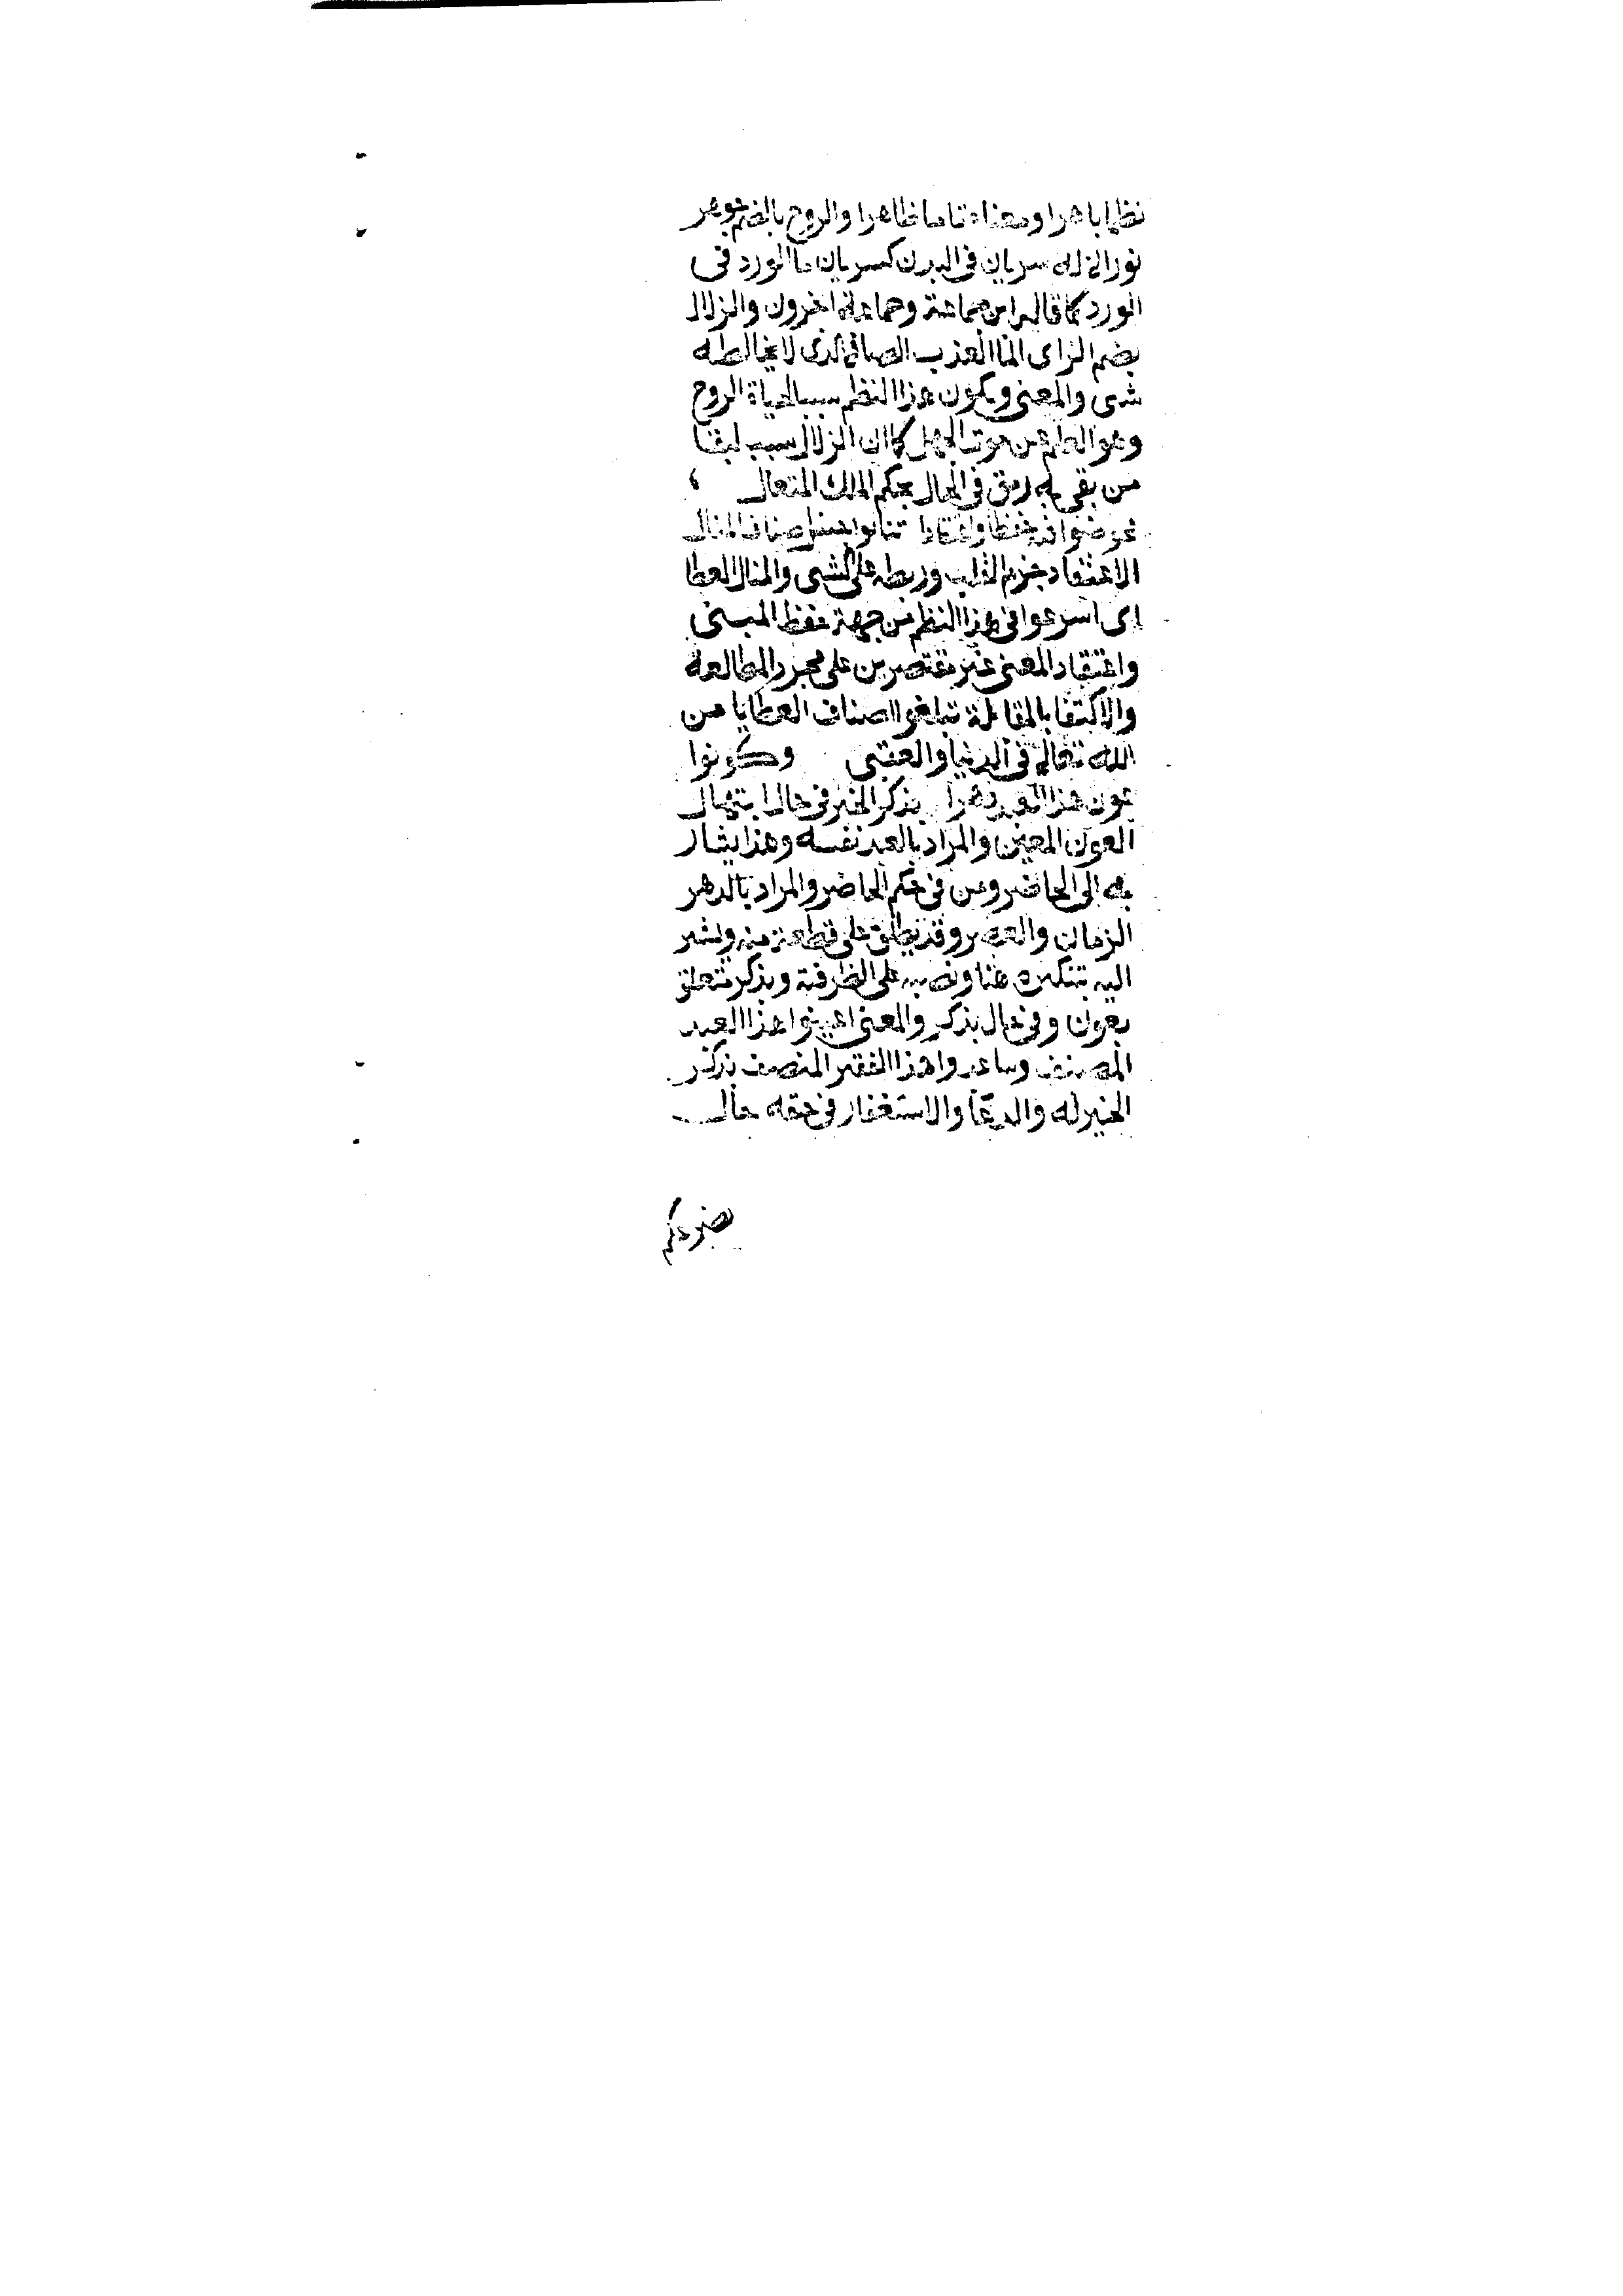 نظما باهرا ومعناه تاما ظاهرا والروح بالضم جوهر
نورانى له سريان فى البدن كسريان ما الورد فى
الورد كما قاله ابن جماعة وجماعة اخرون والزلال
بضم الزاى الما العذب الصافى الذى لا يخالطه
شى والمعنى ويكون هذا النظم سببا لحياة الروح
وهو العلم من موت الجهل كما ان الزلال سبب لبقا
من بقى به رمق فى الحال بحكم الملك المتعال
فخوضوا فيه حفظا واعتقادا تنالوا جنس اصناف المنال
الاعتقاد جزم القلب وربطه على الشى والمنال العطا
اى اسرعوا فى هذا النظم من جهة حفظ المبنى
واعتقاد المعنى غير مقتصرين على مجرد المطالعة
والاكتفا بالمقابلة تبلغوا اصناف العطايا من
الله تعالى فى الدنيا والعقبى وكونوا
عون هذا العبد دهرا بذكر الخير فى حال ابتهال
العون المعين والمراد بالعبد نفسه وهذا يشار
به الى الحاضر ومن فى حكم الحاضر والمراد بالدهر
الزمان والعصر وقد يطلق على قطعة منه ويشير
اليه تنكيره هنا ونصبه على الظرفية وبذكر متعلق
بعون وفى حال بذكر والمعنى اعينوا هذا العبد
المصنف وساعدوا هذا الفقير المنصف بذكر
الخير له والدعا والاستغفار فى حقه حال